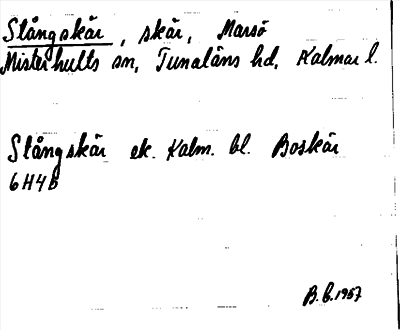 Stångskär, skär, Marsö
Misterhults sn, Tunaläns hd, Kalmar l.
Stångskär ek. Kalm. bl. Boskär
6H4b
B.b. 1957